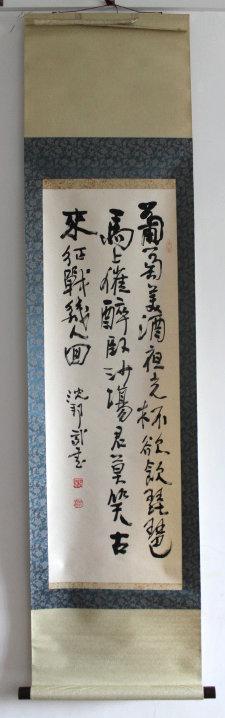 葡萄美酒夜光杯欲飲琵琶
馬上催醉臥沙場君莫笑古
來征戰幾人回
沈邦武書